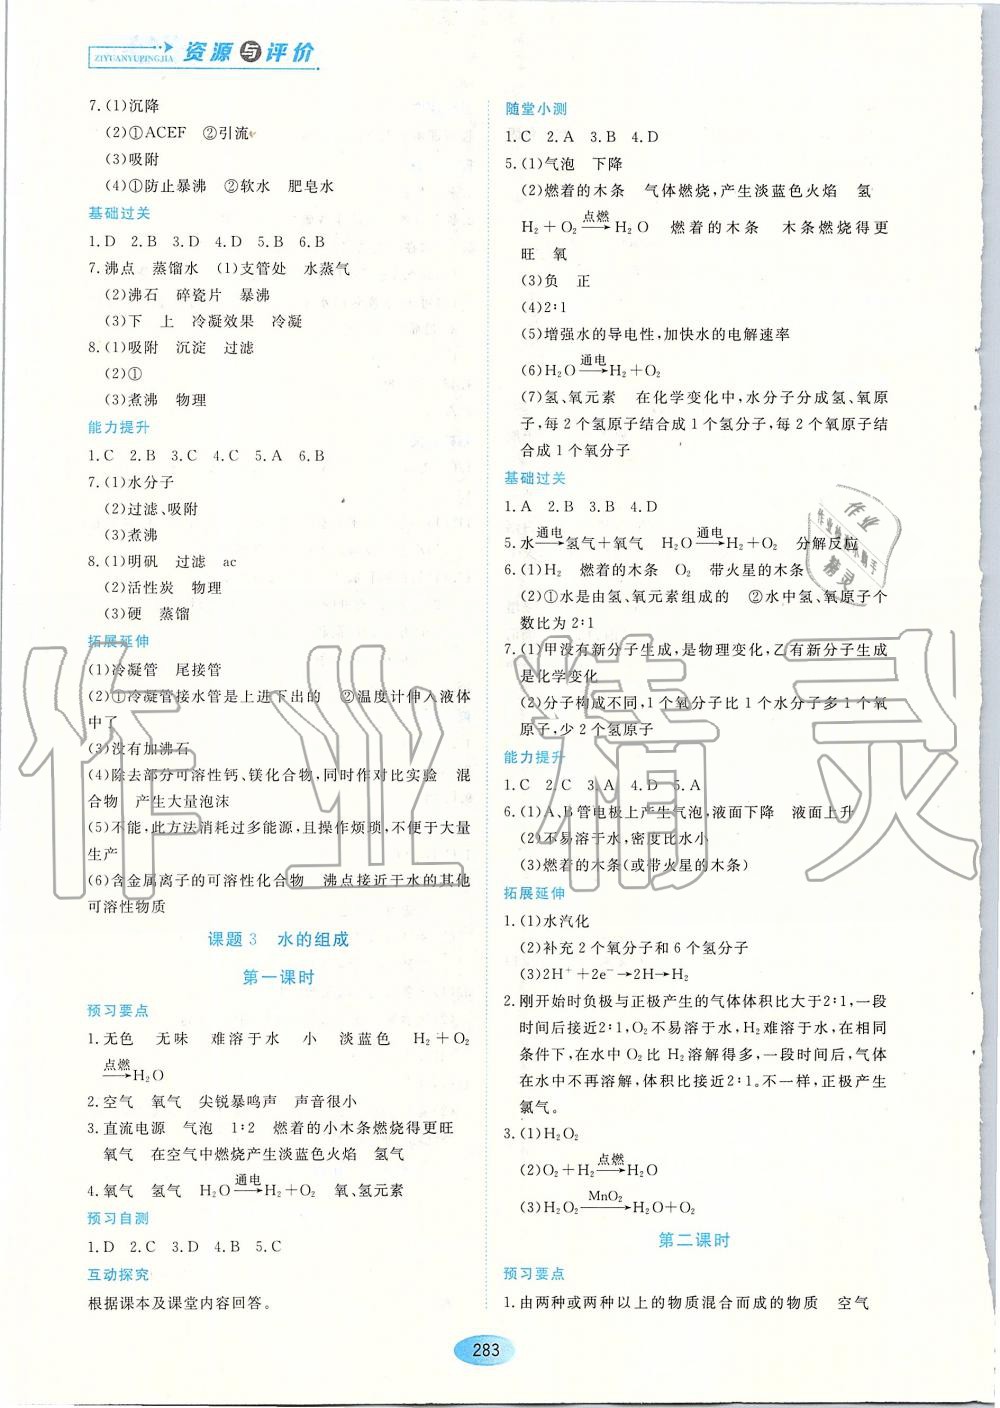 资源与评价
ZIYUANYUPINGJIA
7.(1)沉降
(2)①ACEF ②引流
(3)吸附
(4)①防止暴沸 ②软水 肥皂水
基础过关
1.D 2.B 3.D 4.D 5.B 6.B
7.沸点 蒸馏水 (1)支管处 水蒸气
(2)沸石 碎瓷片 暴沸
(3)下 上 冷凝效果 冷凝
8.(1)吸附 沉淀 过滤
(2)①
(3)煮沸 物理
能力提升
1.C 2.B 3.C 4.C 5.A 6.B
7.(1)水分子
(2)过滤、吸附
(3)煮沸
8.(1)明矾 过滤 ac
(2)活性炭 物理
(3)硬 蒸馏
拓展延伸
(1)冷凝管 尾接管
(2)①冷凝管接水管是上进下出的 ②温度计伸入液体
中了
(3)没有加沸石
(4)除去部分可溶性钙、镁化合物,同时作对比实验 混
合物 产生大量泡沫
(5)不能,此方法消耗过多能源,且操作烦琐,不便于大量
生产
(6)含金属离子的可溶性化合物 沸点接近于水的其他
可溶性物质
课题3 水的组成
第一课时
预习要点
1.无色 无味 难溶于水 小 淡蓝色 H₂+O₂
点燃→H₂O
2.空气 氧气 尖锐暴鸣声 声音很小
3.直流电源 气泡 1∶2 燃着的小木条燃烧得更旺
氧气 在空气中燃烧产生淡蓝色火焰 氢气
4.氧气 氢气 H₂O 通电→H₂+O₂ 氧、氢元素
预习自测
1.D 2.C 3.D 4.B 5.C
互动探究
根据课本及课堂内容回答。
随堂小测
1.C 2.A 3.B 4.D
5.(1)气泡 下降
(2)燃着的木条 气体燃烧,产生淡蓝色火焰 氢
H₂+O₂ 点燃→H₂O 燃着的木条 木条燃烧得更
旺 氧
(3)负 正
(4)2∶1
(5)增强水的导电性,加快水的电解速率
(6)H₂O 通电→H₂+O₂
(7)氢、氧元素 在化学变化中,水分子分成氢、氧原
子,每2个氢原子结合成1个氢分子,每2个氧原子结
合成1个氧分子
基础过关
1.A 2.B 3.B 4.D
5.水 通电→氢气+氧气 H₂O 通电→H₂+O₂ 分解反应
6.(1)H₂ 燃着的木条 O₂ 带火星的木条
(2)①水是由氢、氧元素组成的 ②水中氢、氧原子个
数比为2∶1
7.(1)甲没有新分子生成,是物理变化,乙有新分子生成
是化学变化
(2)分子构成不同,1个氧分子比1个水分子多1个氧
原子,少2个氢原子
能力提升
1.C 2.C 3.A 4.D 5.A
6.(1)A、B管电极上产生气泡,液面下降 液面上升
(2)不易溶于水,密度比水小
(3)燃着的木条(或带火星的木条)
拓展延伸
1.(1)水汽化
(2)补充2个氧分子和6个氢分子
(3)2H⁺+2e⁻→2H→H₂
2.刚开始时负极与正极产生的气体体积比大于2∶1,一段
时间后接近2∶1,O₂不易溶于水,H₂难溶于水,在相同
条件下,在水中O₂比H₂溶解得多,一段时间后,气体
在水中不再溶解,体积比接近2∶1。不一样,正极产生
氯气。
3.(1)H₂O₂
(2)O₂+H₂ 点燃→H₂O
(3)H₂O₂ MnO₂→H₂O+O₂
第二课时
预习要点
1.由两种或两种以上的物质混合而成的物质 空气
283
作业精灵